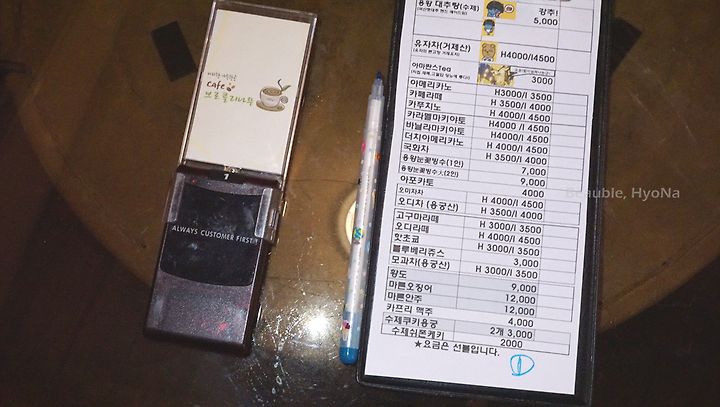 Cafe
ALWAYS CUSTOMER FIRST !
용왕 대추탕(수제) 강추!
5,000
유자차(거제산) H4000/I4500
아마란스tea 3000
아메리카노 H3000/I 3500
카페라떼 H 3500/I 4000
카푸치노 H 4000/I 4500
카라멜마키아토 H4000 /I 4500
바닐라마키아토 H4000/I 4500
더치아메리카노 H 4000/I 4500
국화차 H 3500/I 4000
용왕눈꽃빙수(1인) 7,000
용왕눈꽃빙수大(2인) 9,000
아포카토 4000
오미자차 H 4000/I 4500
오디차 (용궁산) H 3500/I 4000
고구마라떼 H 3000/I 3500
오디라떼 H 4000/I 4500
핫초코 H 3000/I 3500
블루베리쥬스 3,000
모과차(용궁산) H 3000/I 3500
황도 9,000
마른오징어 12,000
마른안주 12,000
카프리 맥주 4,000
수제쿠키용궁 2개 3,000
수제쉬폰케키 2000
★요금은 선불입니다.
HyoNa